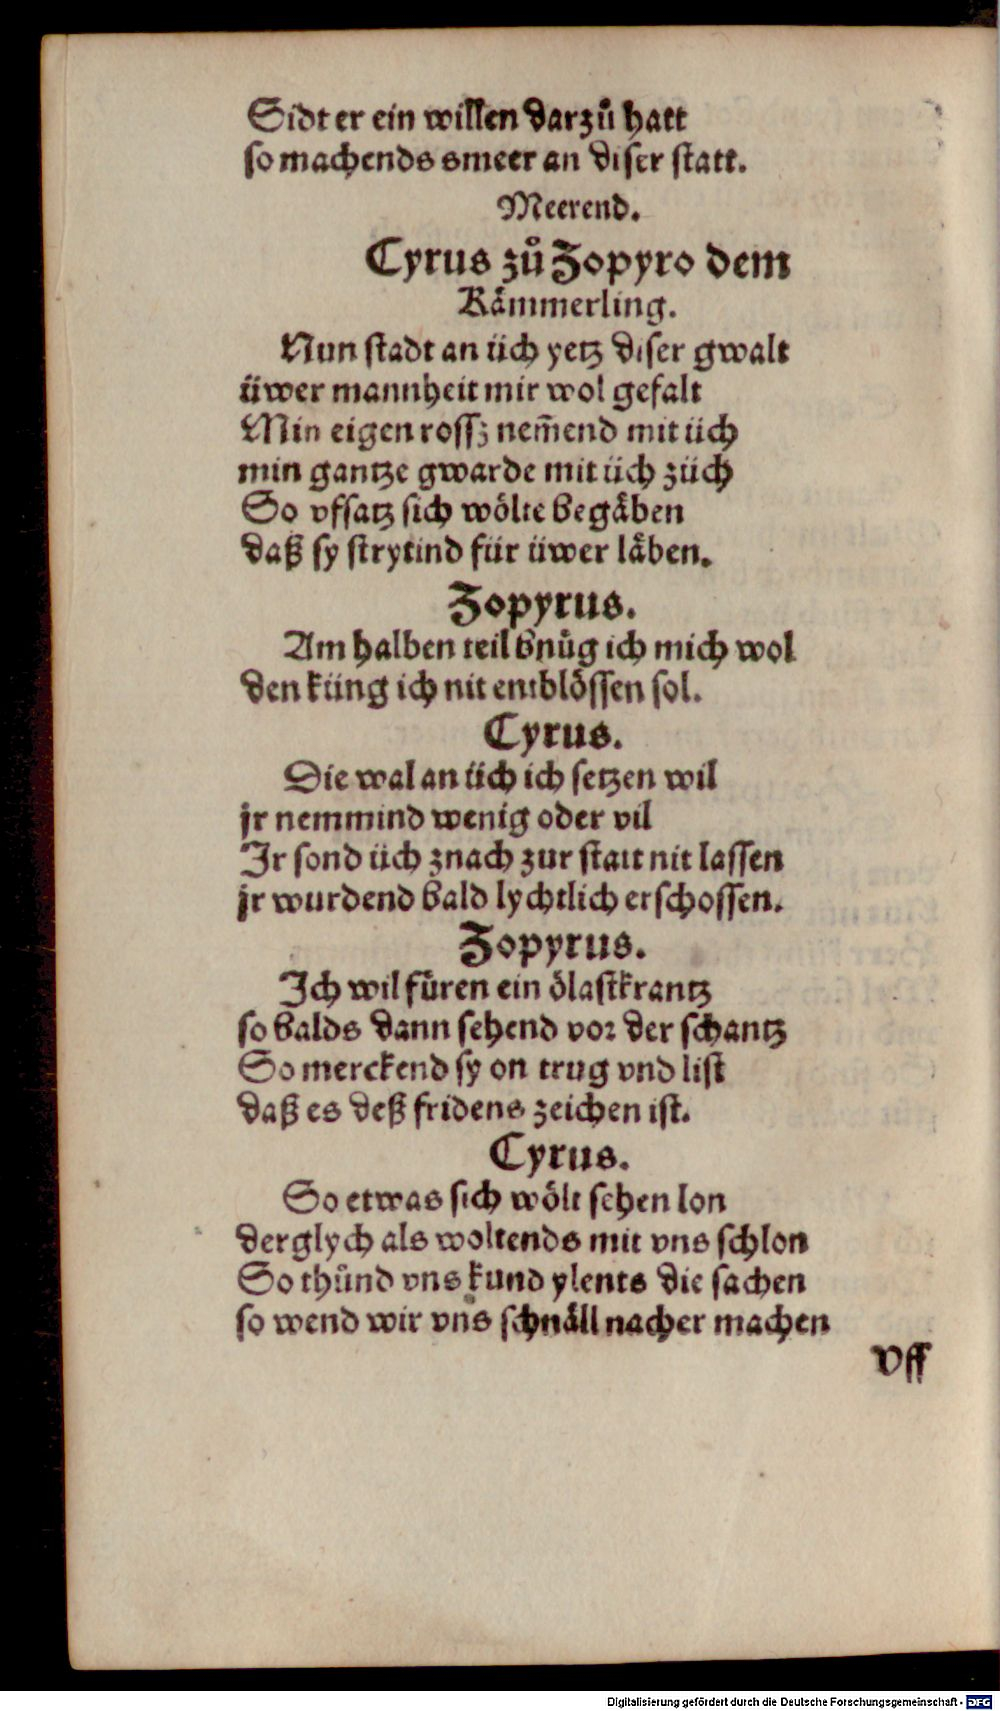 Sidt er ein willen darzuͦ hatt
so machends smeer an diser statt.
Meerend.
Cyrus zuͦ Zopyro dem
Kaͤmmerling.
Nun stadt an üch yetz diser gwalt
üwer mannheit mir wol gefalt
Min eigen rossz nem̃end mit üch
min gantze gwarde mit üch züch
So vfsatz sich woͤlte begaͤben
daß sy strytind für üwer laͤben.
Zopyrus.
Am halben teil bnuͤg ich mich wol
den küng ich nit entbloͤssen sol.
Cyrus.
Die wal an üch ich setzen wil
jr nemmind wenig oder vil
Jr sond üch znach zur statt nit lassen
jr wurdend bald lychtlich erschossen.
Zopyrus.
Jch wil fuͤren ein oͤlastkrantz
so balds dann sehend vor der schantz
So merckend sy on trug vnd list
daß es deß fridens zeichen ist.
Cyrus.
So etwas sich woͤlt sehen lon
derglych als woltends mit vns schlon
So thuͤnd vns kund ylents die sachen
so wend wir vns schnaͤll nacher machen
Vff
Digitalisierung gefördert durch die Deutsche Forschungsgemeinschaft - DFG